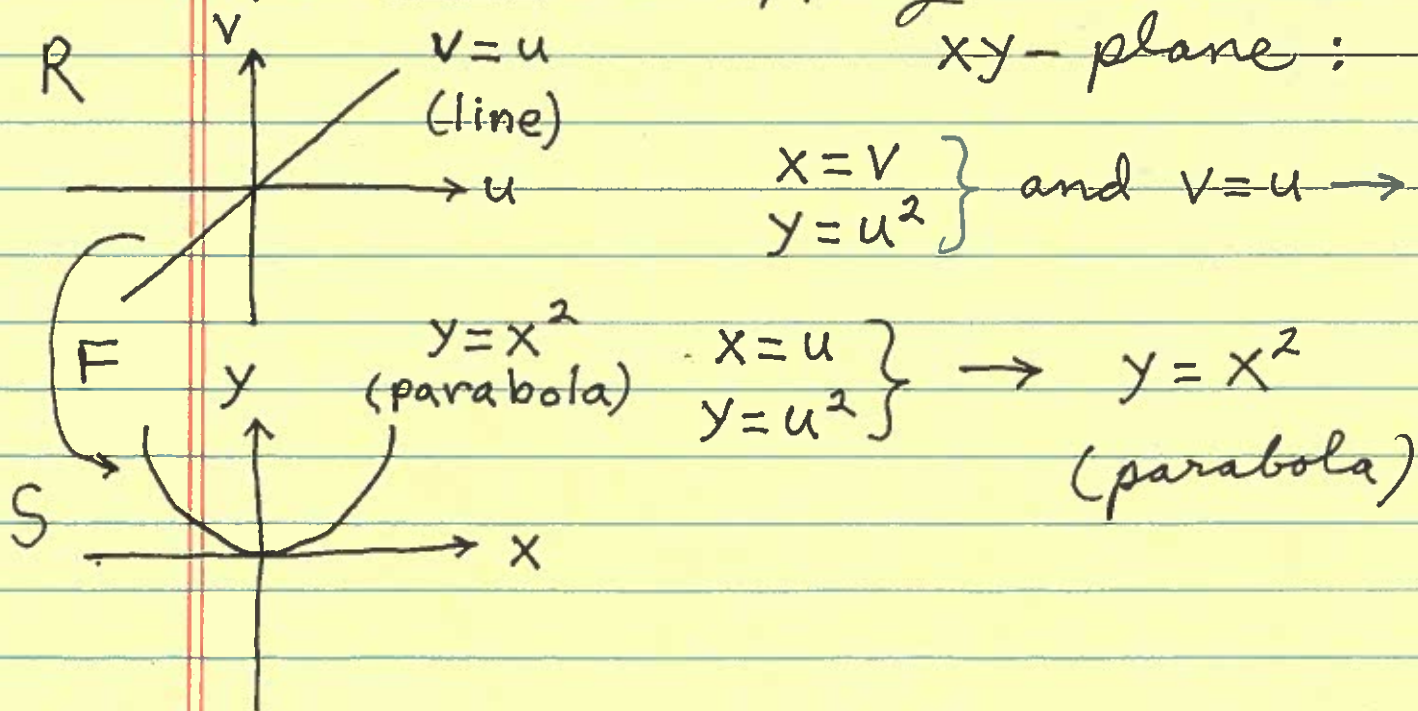 R
V
V = u
(line)
u
xy - plane :
x = V
y = u²
} and V = u →
F
y = x²
(parabola)
x = u
y = u²
} → y = x²
(parabola)
y
S
x